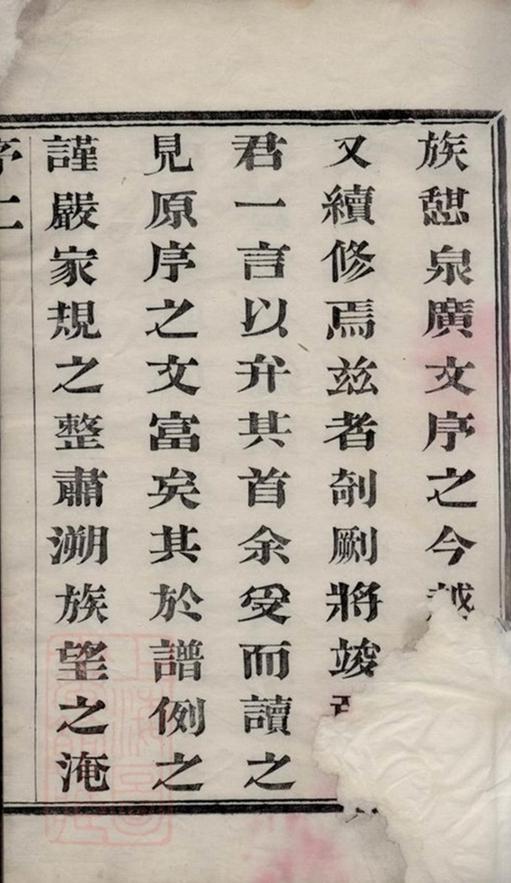 族憇泉廣文序之今越
又續修焉茲者剞劂將竣
君一言以弁其首余受而讀之
見原序之文富矣其於譜例之
謹嚴家規之整肅溯族望之淹
序二